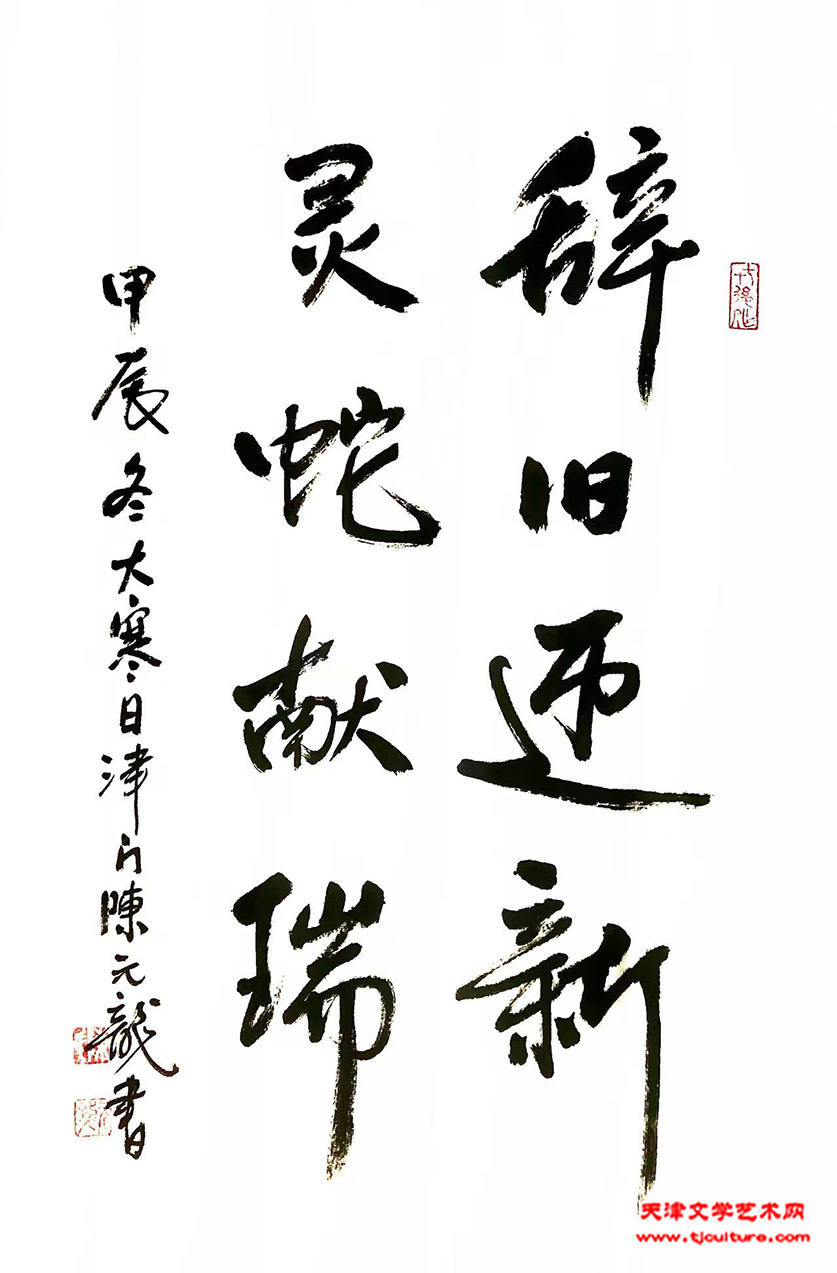 辞旧迎新
灵蛇献瑞
甲辰冬大寒日津门陳元龍书
天津文学艺术网
www.tjculture.com